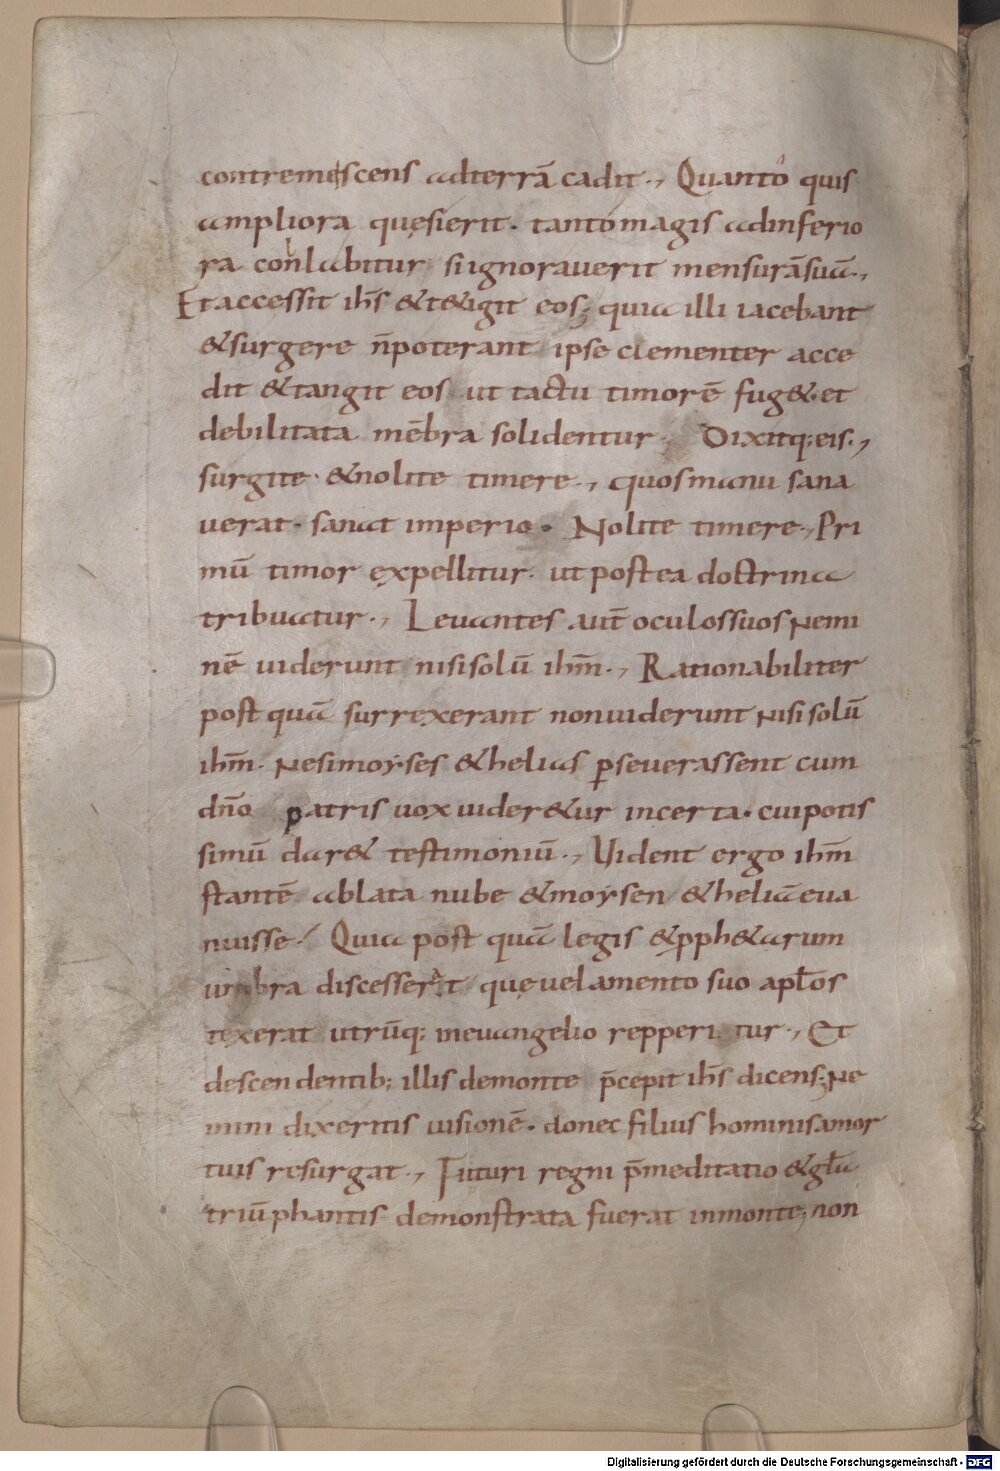 contremescens adterrā cadit., Quanto quis
ampliora quęsierit. tantomagis adinferio
ra conlabitur si ignorauerit mensurāsuā.,
Et accessit ih̄s &t&igit eos; quia illi iacebant
&surgere n̄poterant ipse clementer acce
dit &tangit eos ut tactu timorē fug&. et
debilitata mēbra solidentur. Dixitq; eis.,
surgite. &nolite timere., quosmanu sana
uerat. sanat imperio. Nolite timere., Pri
mū timor expellitur. ut postea doctrina
tribuatur., Leuantes aut̄ oculossuos Nemi
nē uiderunt nisisolū ih̄m., Rationabiliter
post quā surrexerant nonuiderunt Nisi solū
ih̄m. Nesimoyses &helias ꝑseuerassent cum
dn̄o patris uox uider&ur incerta. cuipotis
simū dar& testimoniū., Uident ergo ih̄m
stantē ablata nube &moysen &heliā eua
nuisse. Quia post quā legis &pph&arum
umbra discesserat quę uelamento suo apl̄os
texerat utrūq; ineuangelio repperitur., Et
descendentib; illis demonte p̄cepit ih̄s dicens; Ne
mini dixeritis uisionē. donec filius hominisamor
tuis resurgat., Futuri regni p̄meditatio &gl̄a
triūphantis demonstrata fuerat inmonte; non
Digitalisierung gefördert durch die Deutsche Forschungsgemeinschaft - DFG